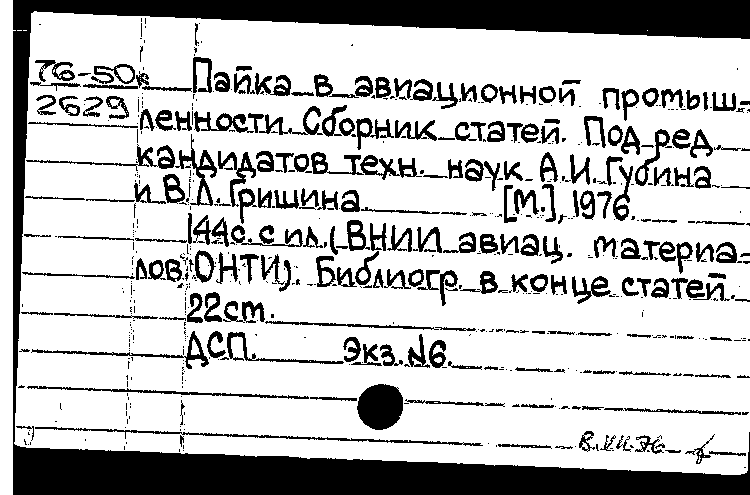 76-50к Пайка в авиационной промыш-
2629 ленности. Сборник статей. Под ред.
кандидатов техн. наук А.И.Губина
и В.Л.Гришина [М.], 1976.
144с. с ил. (ВНИИ авиац. материа-
лов, ОНТИ). Библиогр. в конце статей.
22ст.
ДСП. Экз.№6.